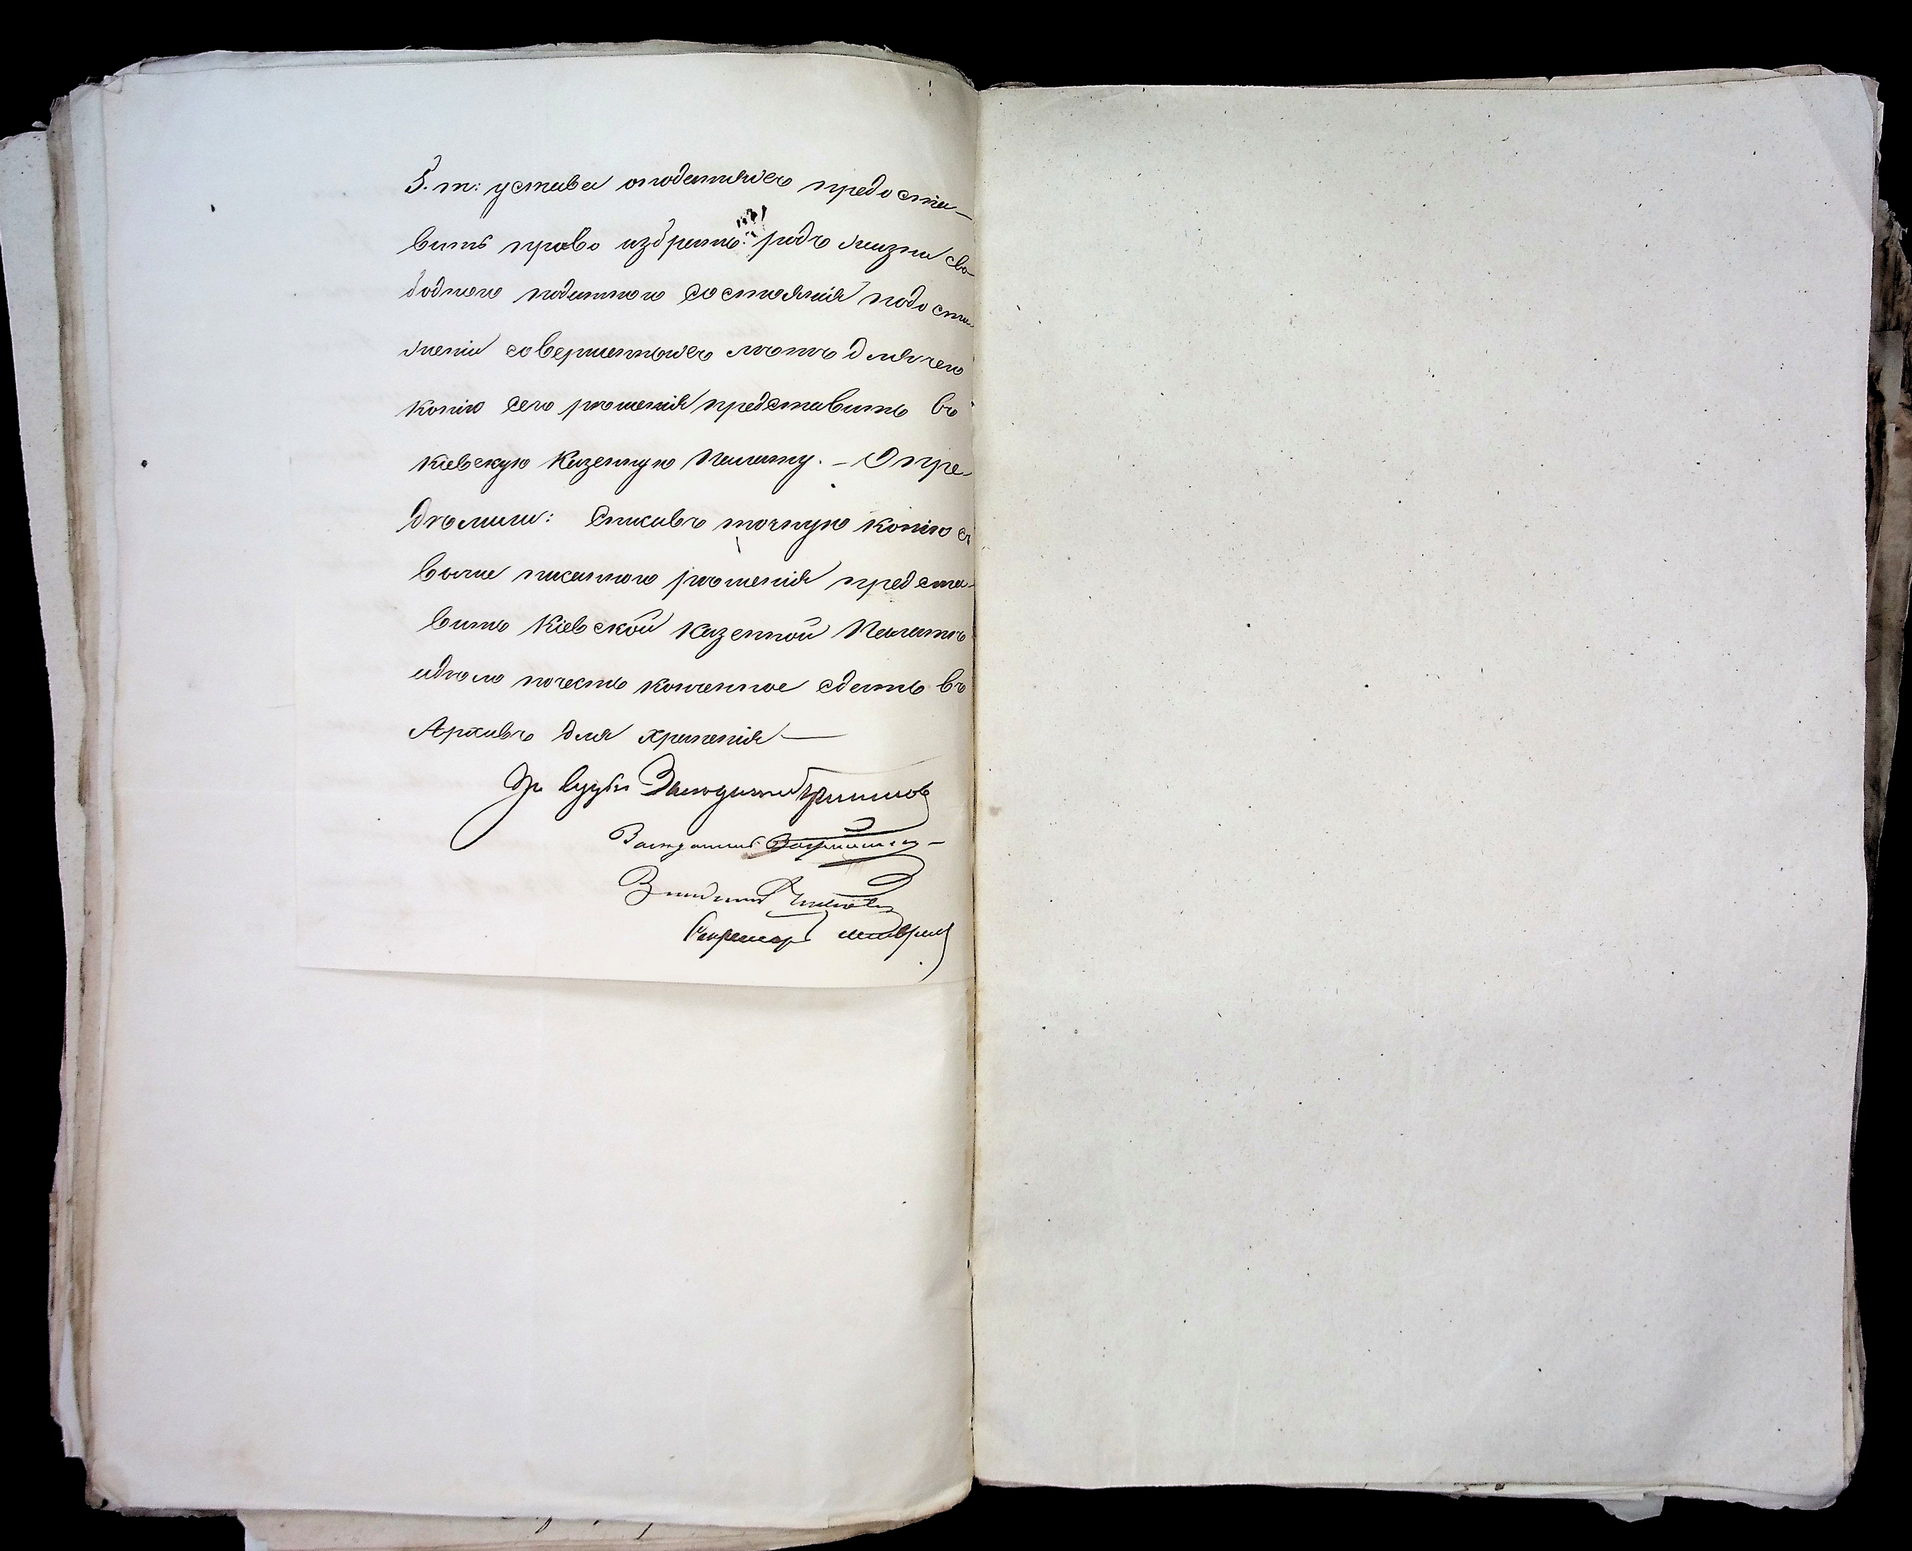 5. т: устава оподатяхъ предоста-
вить право избрать родъ жизни сво-
бодного податного состоянія подости-
женіи совершенныхъ лѣтъ для чего
копію сего рѣшенія представить въ
Кіевскую Казенную Палату. – Опре-
дѣлили: Списавъ точную копію съ
выше писанного рѣшенія предста-
вить Кіевской Казенной Палатѣ
идѣло почесть конченное сдать въ
Архивъ для храненія —
Засѣдатель
Засѣдатель
Секретарь